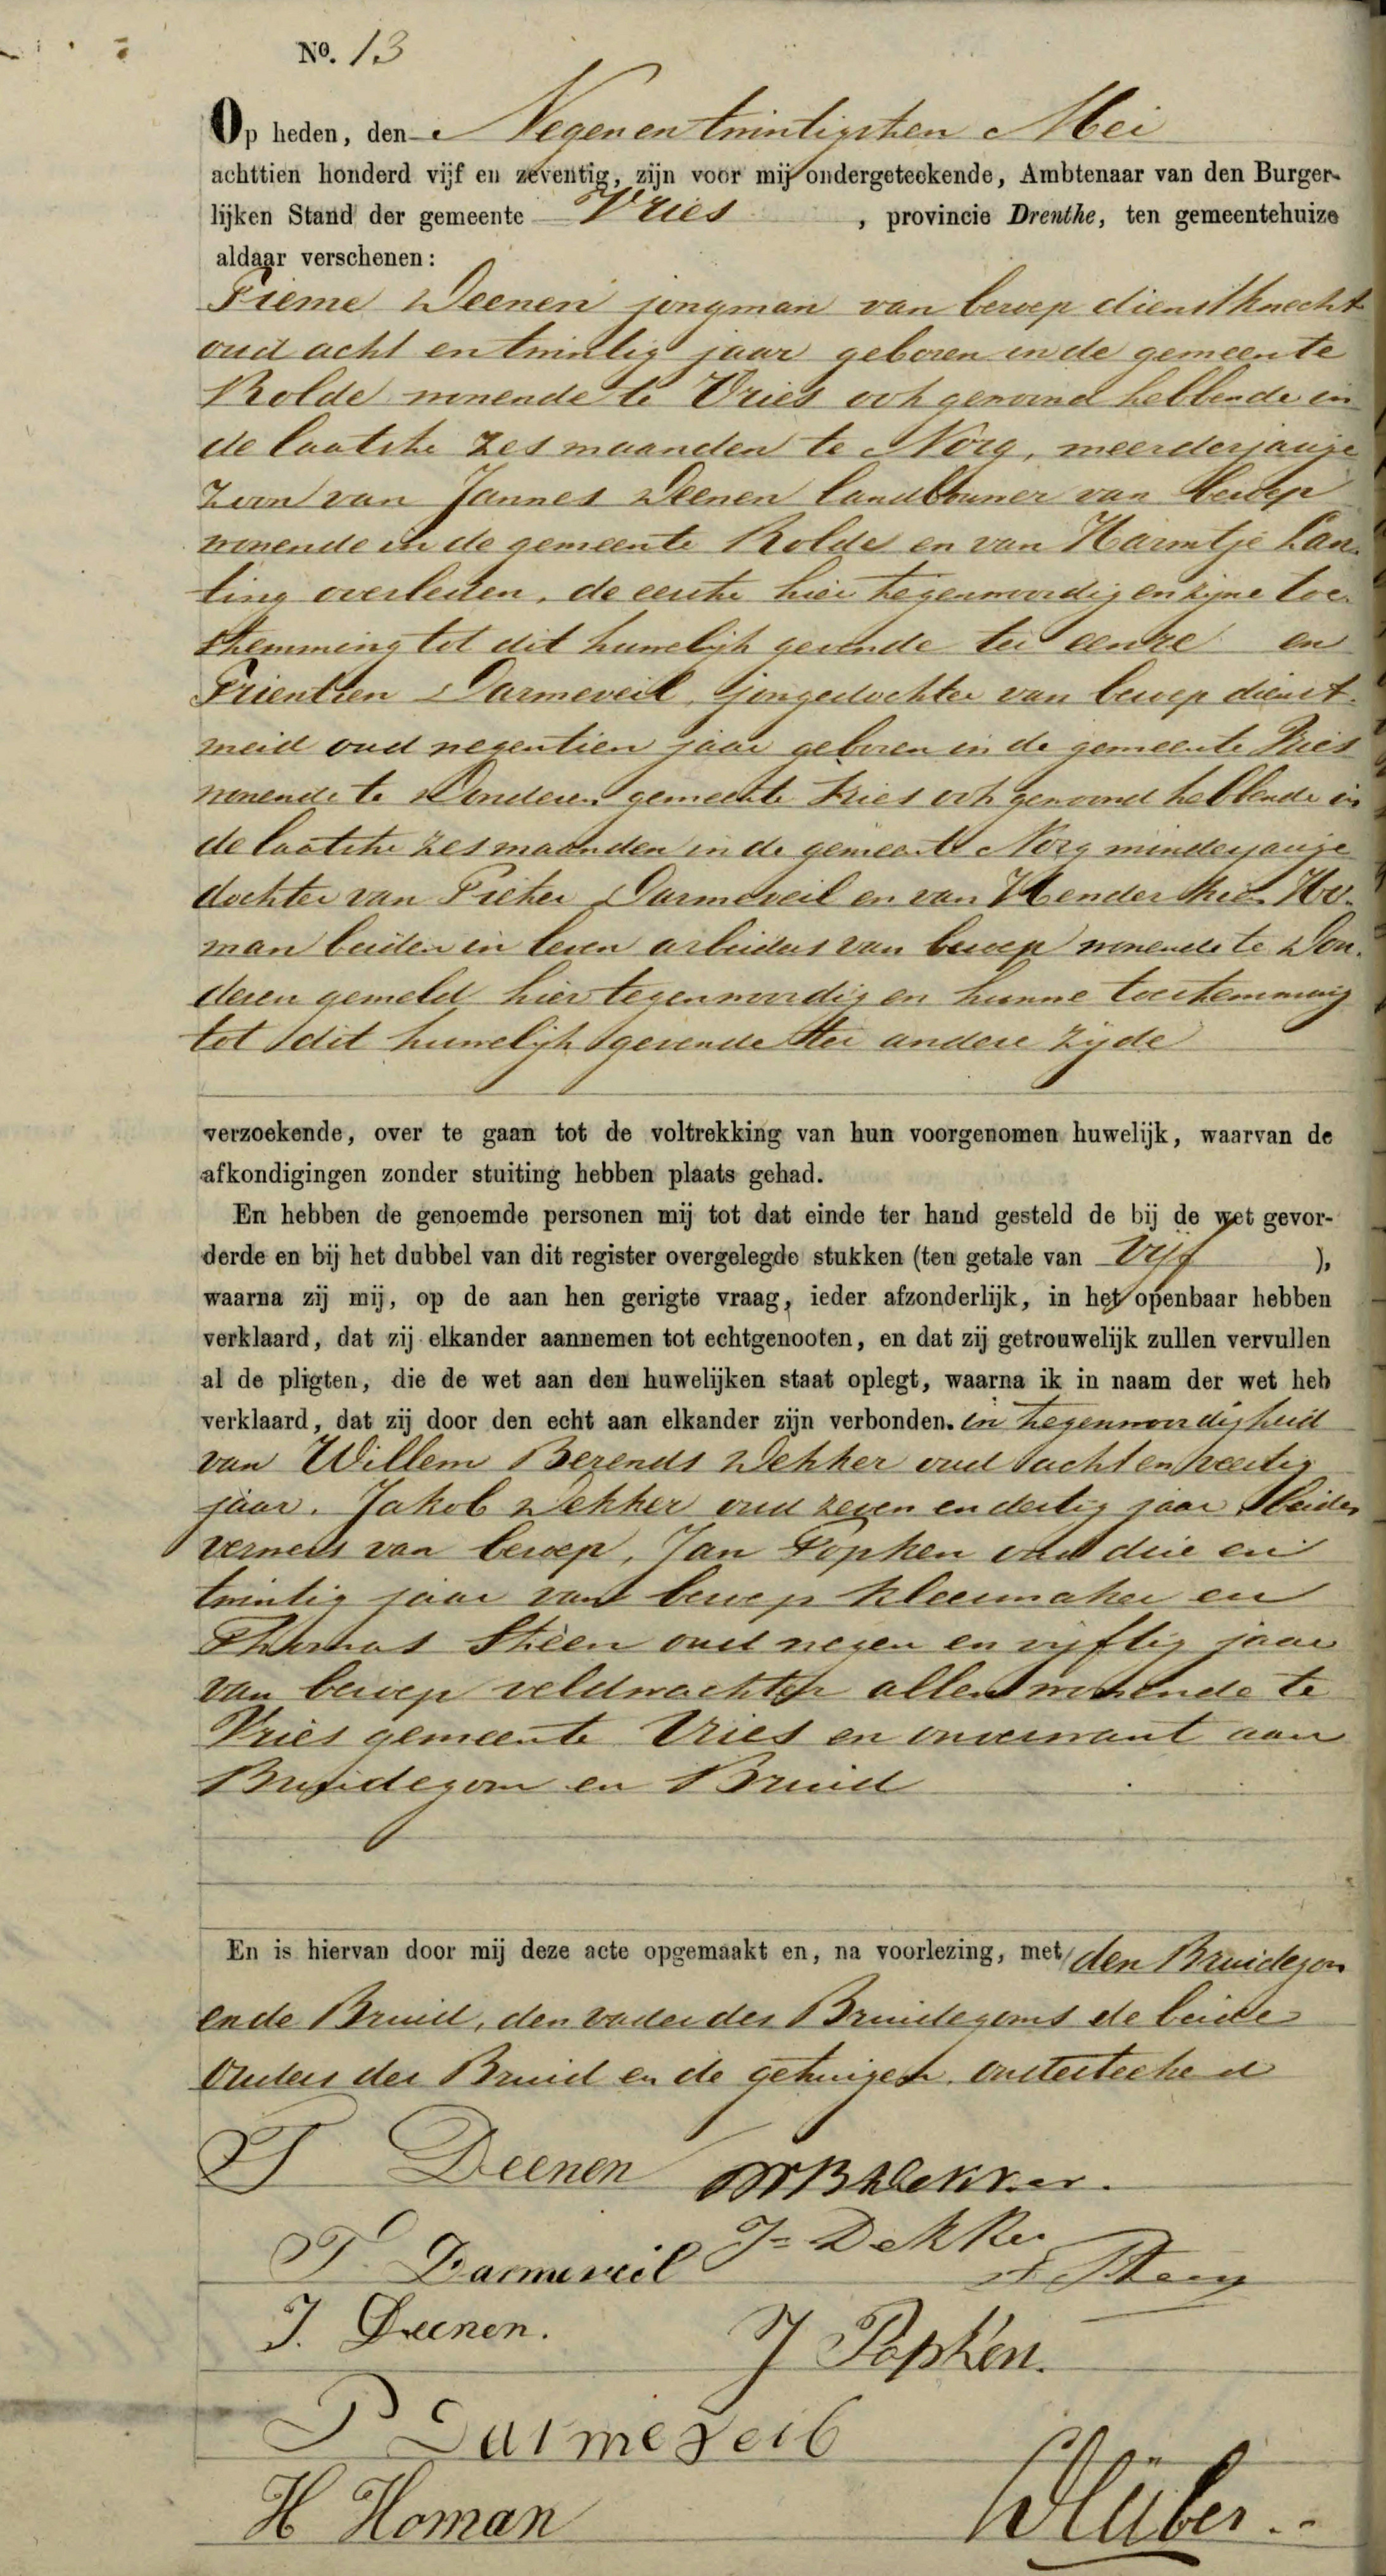 No. 13
Op heden, den Negenentwintigsten Mei
achttien honderd vijf en zeventig, zijn voor mij ondergeteekende, Ambtenaar van den Burger-
lijken Stand der gemeente Vries, provincie Drenthe, ten gemeentehuize
aldaar verschenen:
Tieme Deenen jongman van beroep dienstknecht
oud acht en twintig jaar geboren in de gemeente
Rolde wonende te Vries ook gewoond hebbende in
de laatste zes maanden te Norg, meerderjarige
zoon van Jannes Deenen landbouwer van beroep
wonende in de gemeente Rolde en van Harmtje Lan-
ting overleden, de eerste hier tegenwoordig en zijne toe-
stemming tot dit huwelijk gevende ter eenre en
Trientien Darmeveil, jongedochter van beroep dienst-
meid oud negentien jaar geboren in de gemeente Vries
wonende te Donderen gemeente Vries ook gewoond hebbende in
de laatste zes maanden in de gemeente Norg minderjarige
dochter van Pieter Darmeveil en van Henderkien Ho-
man beiden in leven arbeiders van beroep wonende te Don-
deren gemeld hier tegenwoordig en hunne toestemming
tot dit huwelijk gevende ter andere zijde
verzoekende, over te gaan tot de voltrekking van hun voorgenomen huwelijk, waarvan de
afkondigingen zonder stuiting hebben plaats gehad.
En hebben de genoemde personen mij tot dat einde ter hand gesteld de bij de wet gevor-
derde en bij het dubbel van dit register overgelegde stukken (ten getale van Vijf ),
waarna zij mij, op de aan hen gerigte vraag, ieder afzonderlijk, in het openbaar hebben
verklaard, dat zij elkander aannemen tot echtgenooten, en dat zij getrouwelijk zullen vervullen
al de pligten, die de wet aan den huwelijken staat oplegt, waarna ik in naam der wet heb
verklaard, dat zij door den echt aan elkander zijn verbonden. in tegenwoordigheid
van Willem Berends Dekker oud acht en veertig
jaar, Jakob Dekker oud zeven en dertig jaar beiden
verwers van beroep, Jan Popken oud drie en
twintig jaar van beroep kleermaker en
Thomas Steen oud negen en vijftig jaar
van beroep veldwachter allen wonende te
Vries gemeente Vries en onverwant aan
Bruidegom en Bruid
En is hiervan door mij deze acte opgemaakt en, na voorlezing, met den Bruidegom
en de Bruid, den vader des Bruidegoms de beide
Ouders der Bruid en de getuigen onderteekend
T Deenen WB Dekker.
T Darmeveil J= Dekker
T Steen
J. Deenen. J Popken.
P Darmeveil
H Homan